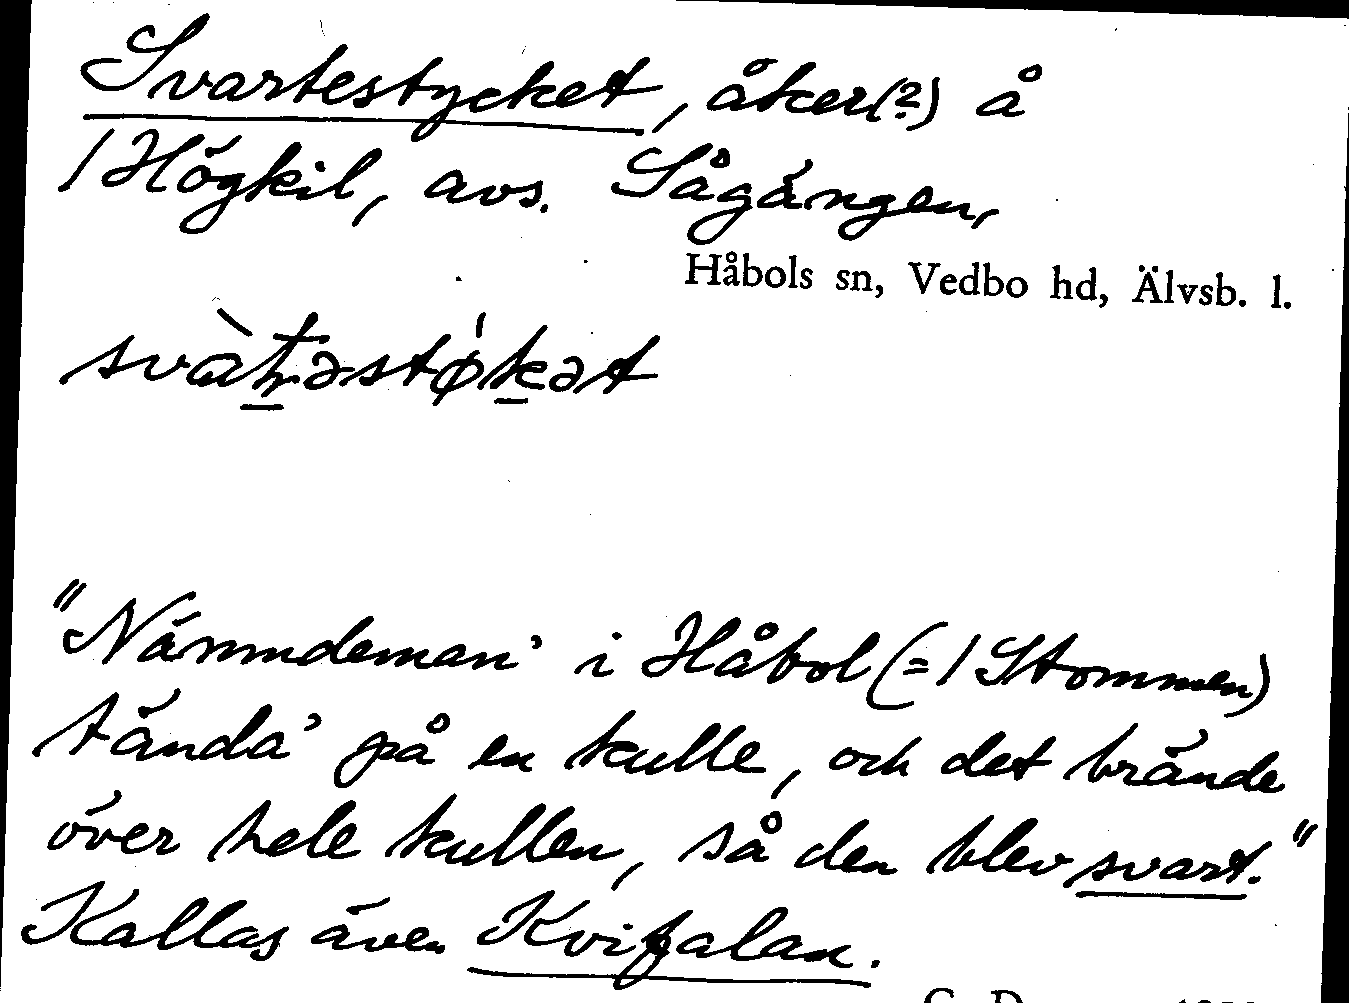 Svartestycket, åker(?) å
/ Högkil, avs. Sågången,
Håbols sn, Vedbo hd, Älvsb. l.
"Nämndeman' i Håbol (= / Stommen)
tända' på en kulle, och det brände
över hele kullen, så den blev svart."
Kallas även Kvifalan.